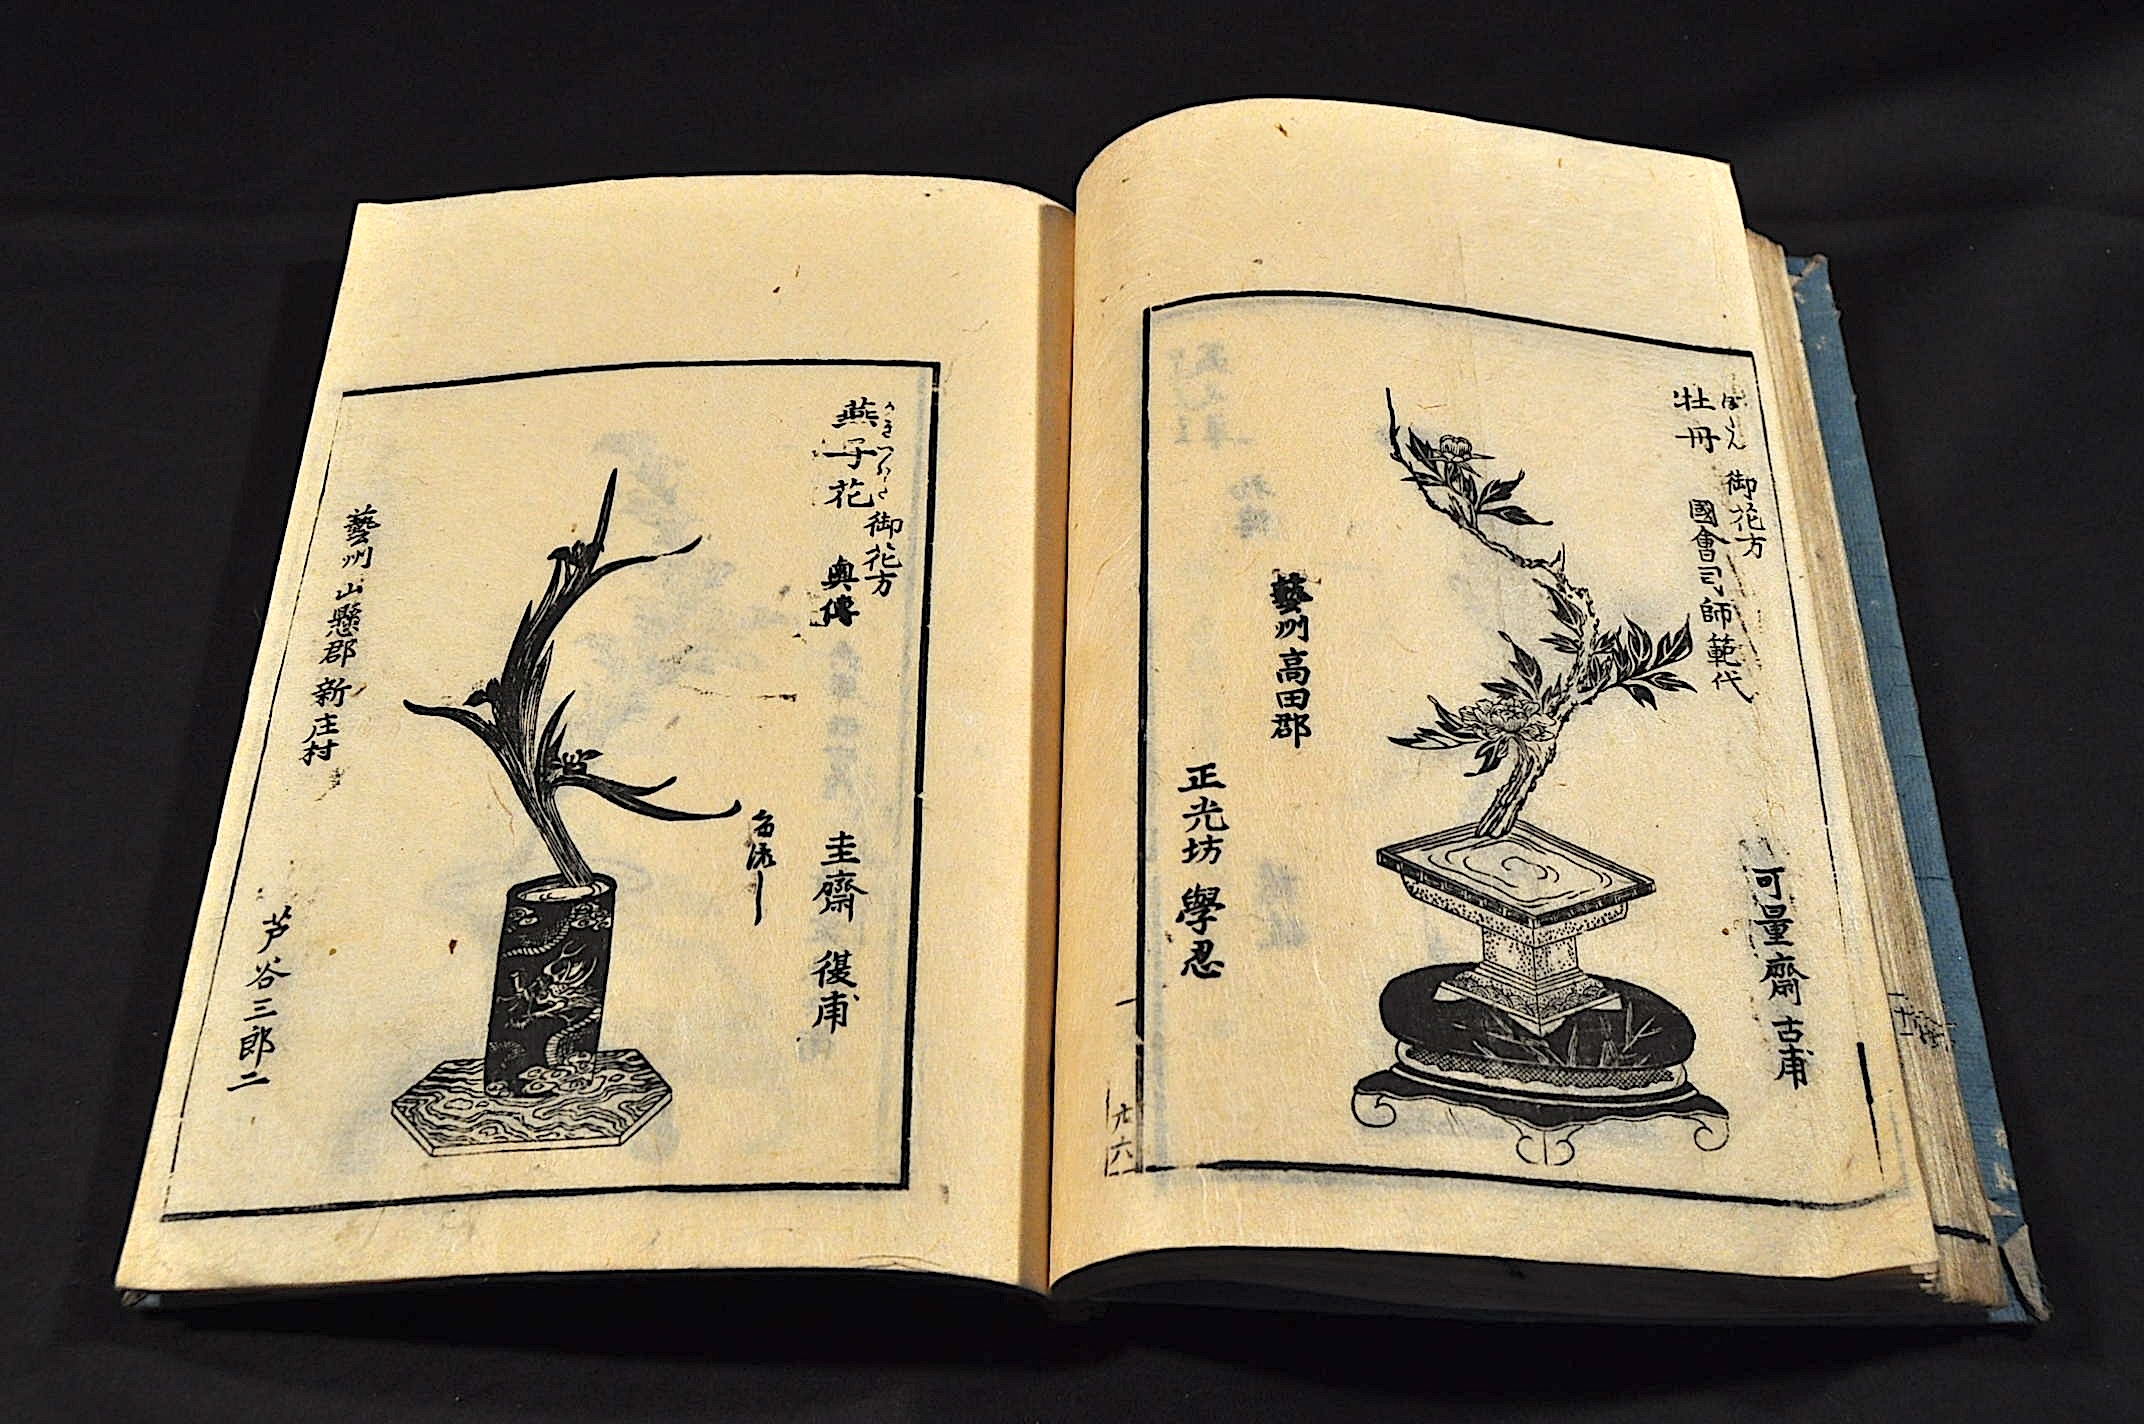 牡丹
御花方
國會司師範代
可量齋 古甫
藝州高田郡
正光坊 學忍
六六
燕子花
かきつばた
御花方
奥傳
圭齋 復甫
藝州山縣郡新庄村
芦谷三郎二